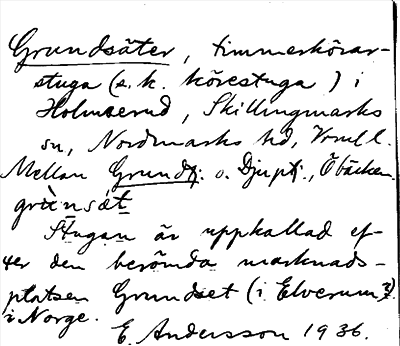 Grundsäter, timmerkörar-
stuga (s. k. körestuga) i
Holmerud, Skillingmarks
sn, Nordmarks hd, Vrml.
Mellan Grundtj. o. Djuptj., Öbäcken.
grùnsǽt
Stugan är uppkallad ef-
ter den berömda marknads-
platsen Grundset (i Elverum?)
i Norge.
E. Andersson 1936.